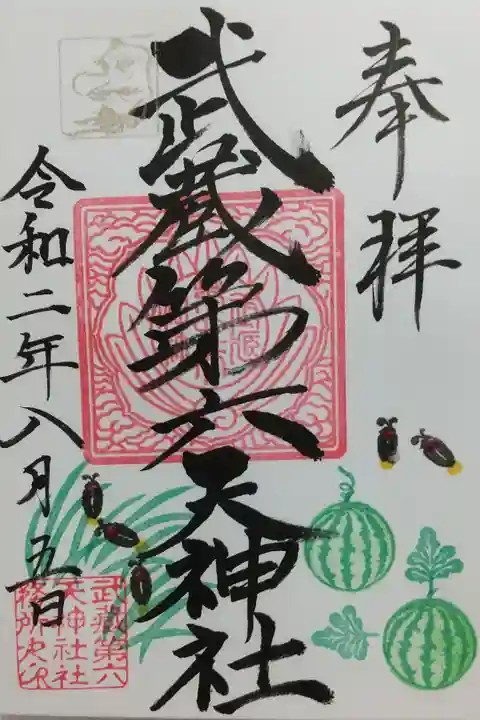 奉拝
武蔵第六天神社
令和二年八月五日
武蔵第六
天神社社